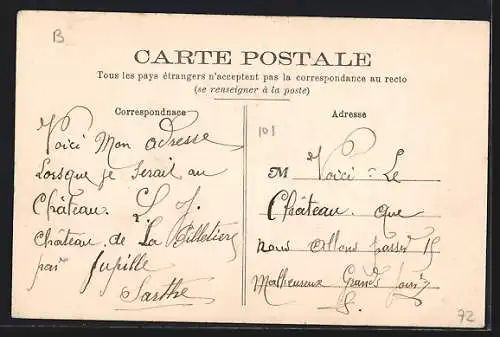 B
CARTE POSTALE
Tous les pays étrangers n'acceptent pas la correspondance au recto
(se renseigner à la poste)
Correspondnace
Voici Mon adresse
Lorsque je serait au
Château. L. J.
Château de La Pilletiere
par Jupille
Sarthe
Adresse
101
M Voici : Le
Château. que
nous allons passer 15
Malheureux Grands jours
72